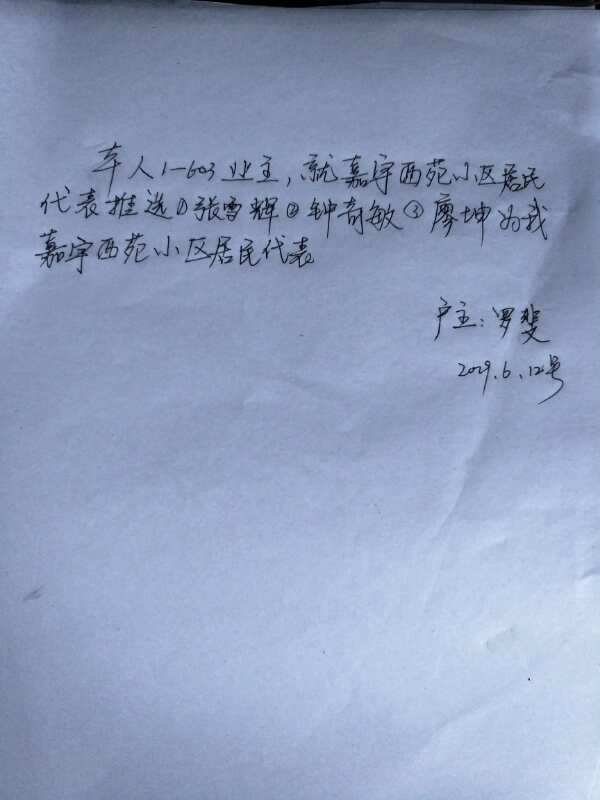 本人1-603业主，就嘉宇西苑小区居民
代表推选①张雪辉②钟奇敏③廖坤为我
嘉宇西苑小区居民代表
户主：罗斐
2029.6.12号